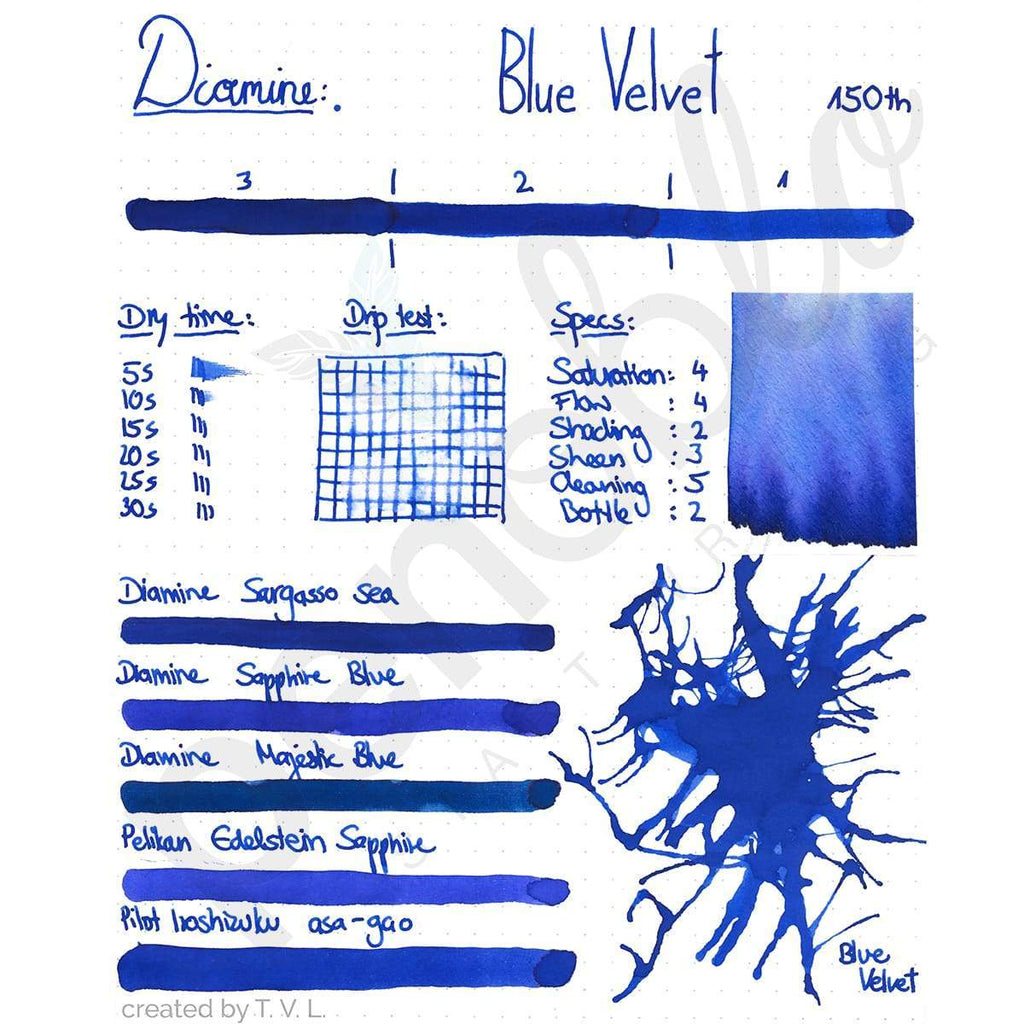 Diamine:.
Blue Velvet
150th
3 | 2 | 1
Dry time:
5s
10s
15s
20s
25s
30s
Drip test:
Specs:
Saturation: 4
Flow : 4
Shading : 2
Sheen : 3
Cleaning : 5
Bottle : 2
Diamine Sargasso sea
Diamine Sapphire Blue
Diamine Majestic Blue
Pelikan Edelstein Sapphire
Pilot Iroshizuku asa-gao
Blue
Velvet
created by T. V. L.
penoblo